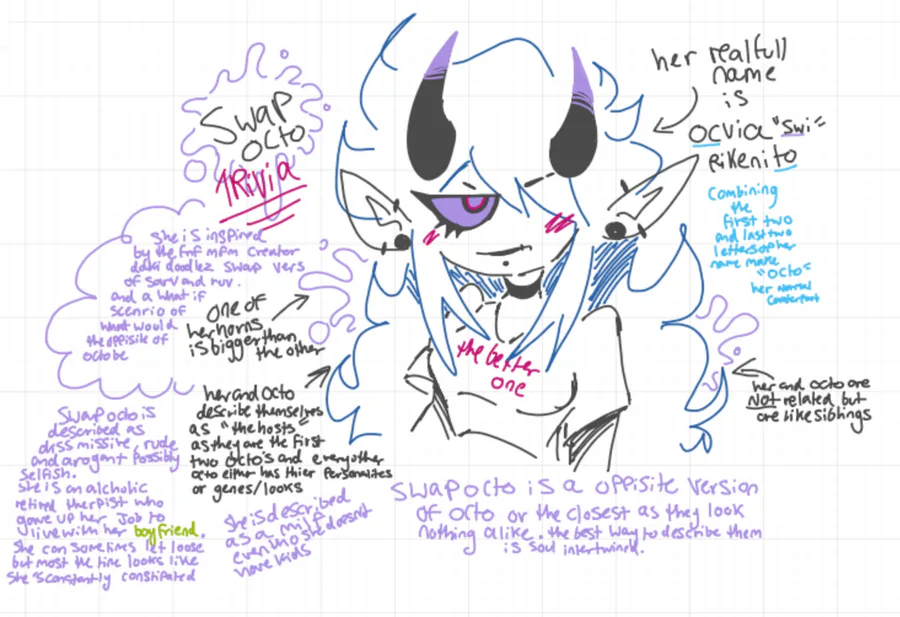 Swap
octo
TRivia
her real full
name
is
ocvia "swi"
Rikenito
Combining
the
first two
and last two
letters of her
name make
"octo"
her normal
counterpart
She is inspired
by the fnf mfm creator
dokki doodlez swap vers
of sarv and ruv.
and a what if
scenrio of
what would
the oppisite of
octo be
one of
her horns
is bigger than
the other
her and octo
describe themselves
as "the hosts"
as they are the first
two octo's and every other
octo either has thier personalites
or genes/looks
the better
one
her and octo are
NOT related but
are like siblings
Swap octo is
described as
dissmissive, rude
and arogant possibly
selfish.
she is an alcholic
retired therpist who
gave up her job to
live with her boyfriend.
She can sometimes let loose
but most the time looks like
she's constantly constipated
she is described
as a milf
even tho she doesn't
have kids
swap octo is a oppisite version
of octo or the closest as they look
nothing alike. the best way to describe them
is soul intertwined.